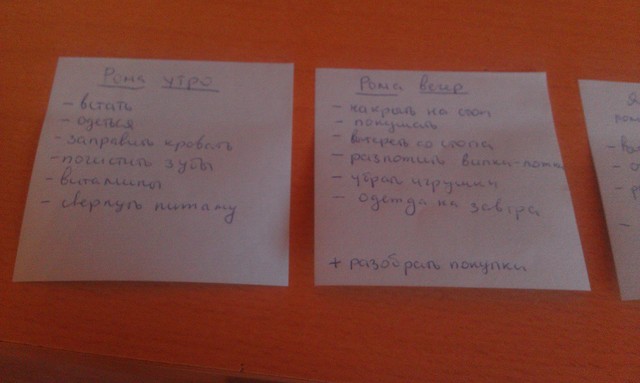 Рома утро
- встать
- одеться
- заправить кровать
- почистить зубы
- витамины
- свернуть пижаму
Рома вечер
- накрыть на стол
- покушать
- вытереть со стола
- разложить вилки-ложк
- убрать игрушки
- одежда на завтра
+ разобрать покупки